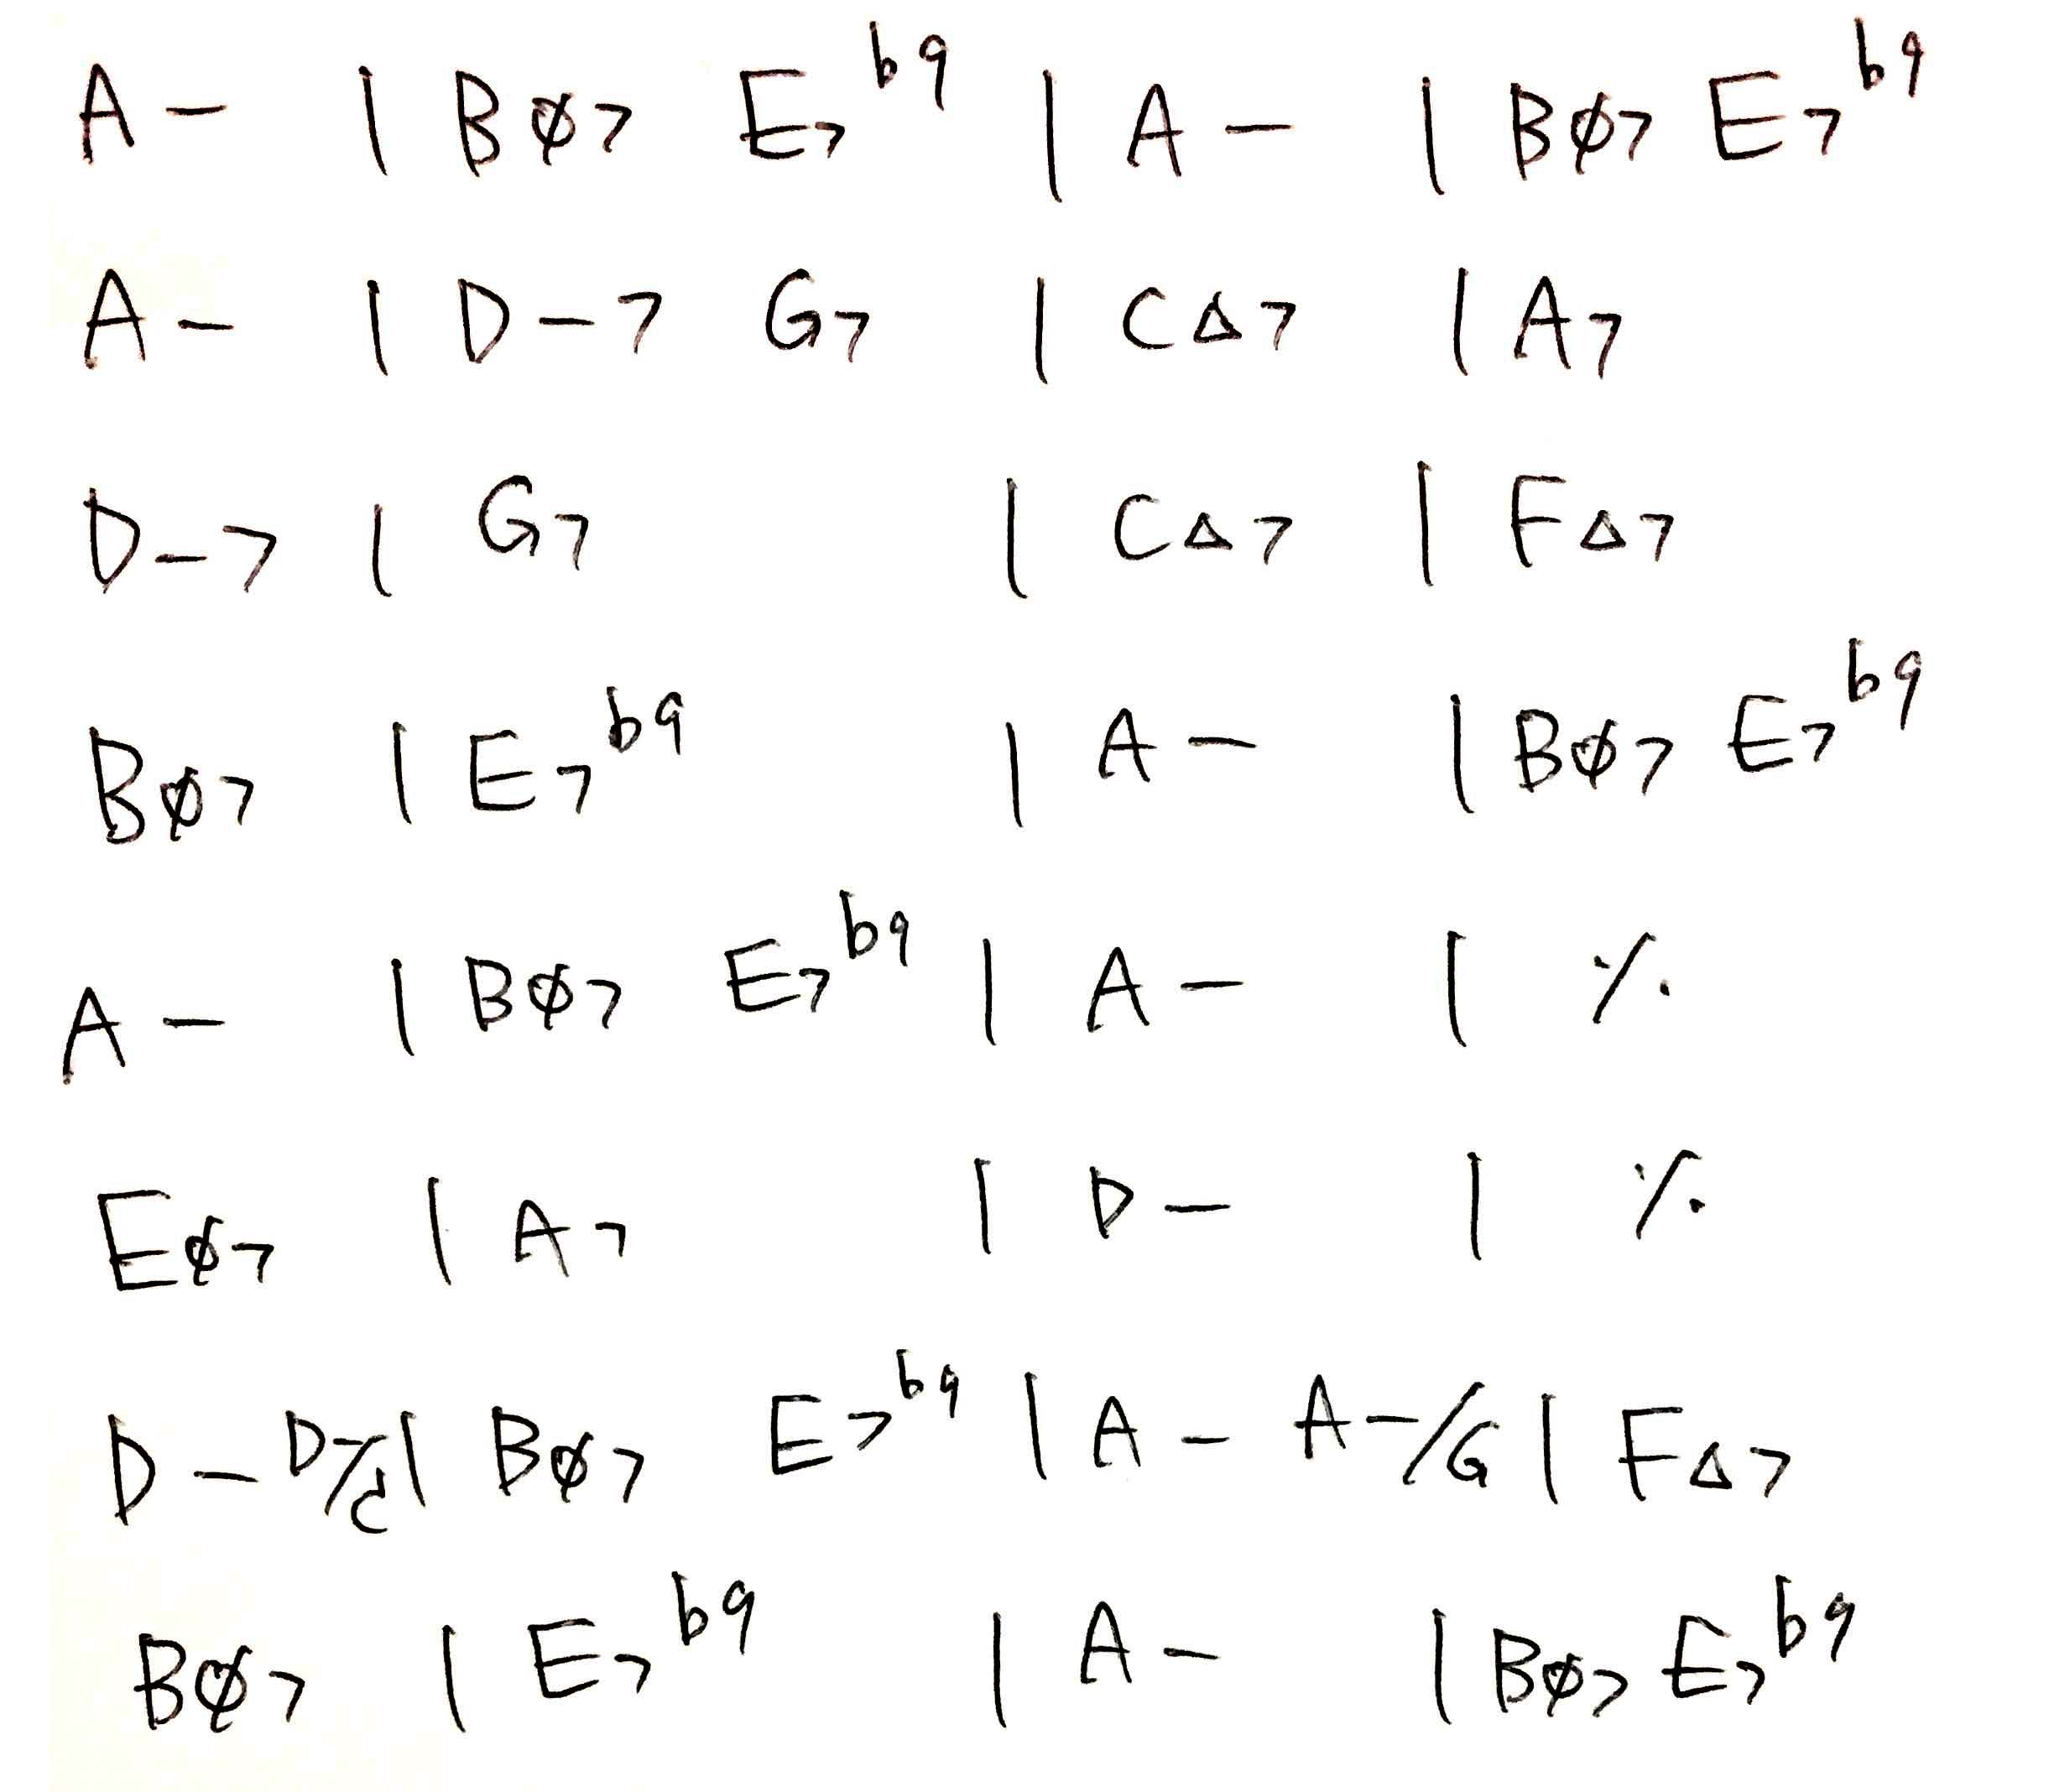 A- | Bø7 E7b9 | A- | Bø7 E7b9
A- | D-7 G7 | CΔ7 | A7
D-7 | G7 | CΔ7 | FΔ7
Bø7 | E7b9 | A- | Bø7 E7b9
A- | Bø7 E7b9 | A- | %
Eø7 | A7 | D- | %
D- D-/C | Bø7 E7b9 | A- A-/G | FΔ7
Bø7 | E7b9 | A- | Bø7 E7b9